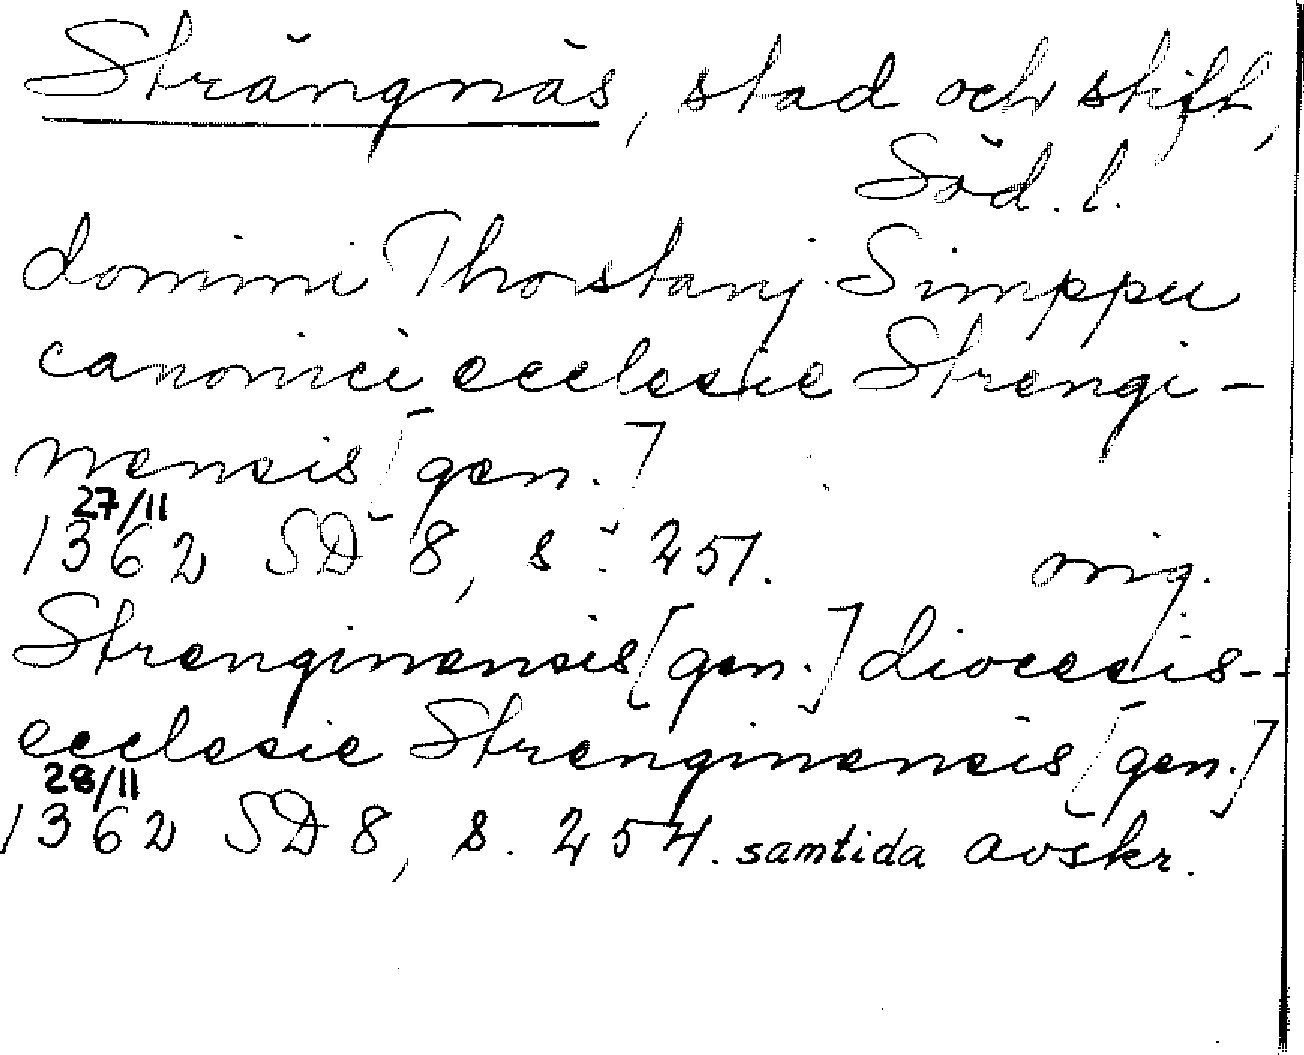 Strängnäs, stad och stift,
Söd. l.
domini Thorstanj Simppu
canonici ecclesie Strengi-
nensis [gen.]
27/11
1362 SD 8, s. 251. orig.
Strenginensis [gen.] diocesis--
ecclesie Strenginensis [gen.]
28/11
1362 SD 8, s. 254. samtida avskr.